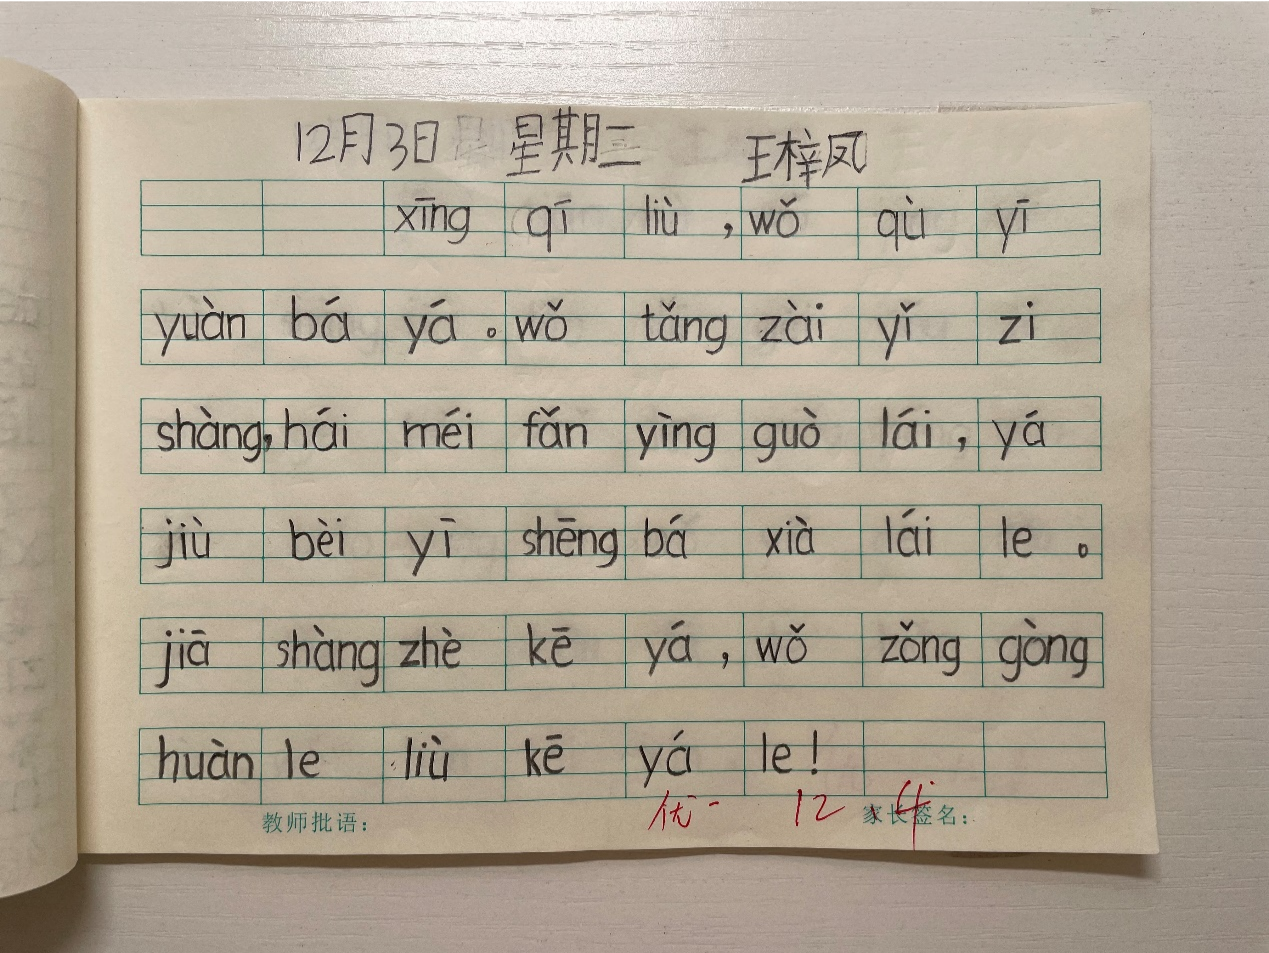 12月3日 星期三 王梓凤
xīng qī liù ，wǒ qù yī
yuàn bá yá 。wǒ tǎng zài yǐ zi
shàng，hái méi fǎn yìng guò lái ，yá
jiù bèi yī shēng bá xià lái le 。
jiā shàng zhè kē yá ，wǒ zǒng gòng
huàn le liù kē yá le！
优- 12.4
教师批语： 家长签名：